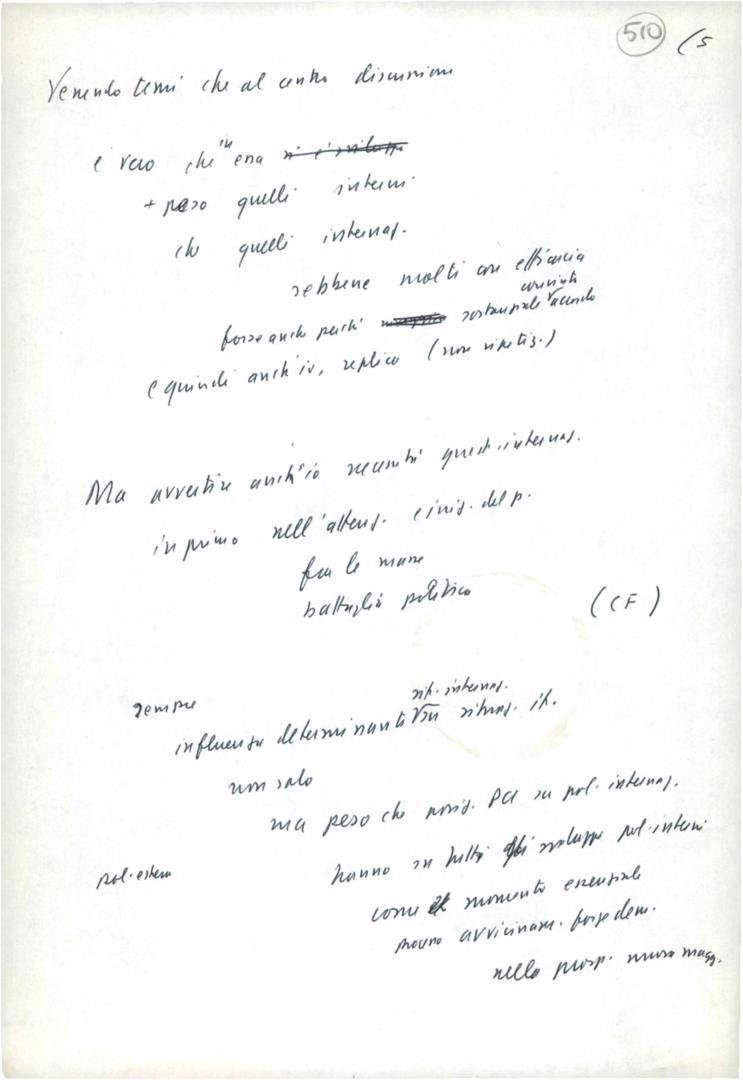 510 (5
Venendo temi che al centro discussione
è vero che in essa si è sviluppo
+ peso quelli interni
che quelli internaz.
sebbene molti con efficacia
forse anche perchè sostanziale convinto accordo
e quindi anch'io, replico (non ripetiz.)
Ma avvertire anch'io necessità quest. internaz.
in primo nell'attenz. e iniz. del p.
fra le masse
battaglia politica (CF)
sempre
influenza determinante sit. internaz. su situaz. it.
non solo
ma peso che posiz. PCI su pol. internaz.
pol. estera hanno su tutti gli sviluppi pol. interni
come momento essenziale
processo avvicinam. forze dem.
nella prosp. nuova magg.